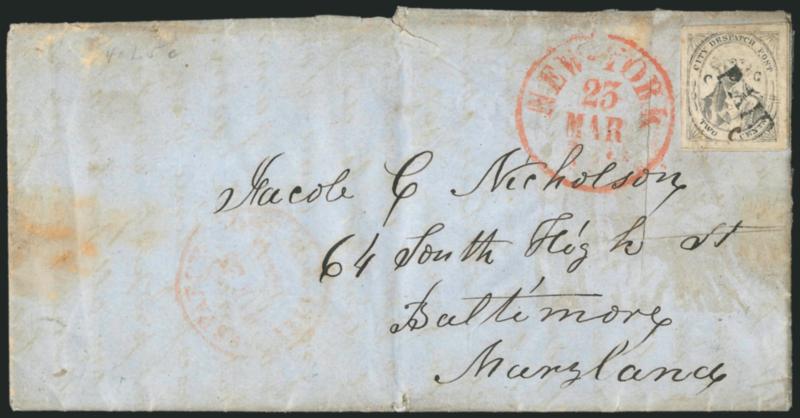 4. L 5 c
NEW-YORK
23
MAR
CITY DESPATCH POST
PAID
TWO CENTS
Jacob C Nicholson
64 South High St
Baltimore
Maryland